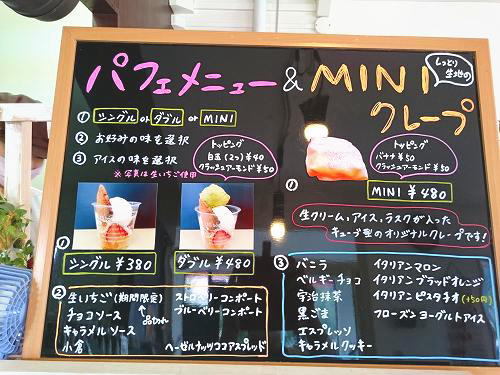 パフェメニュー & MINI
しっとり
生地の
クレープ
① シングル or ダブル or MINI
② お好みの味を選択
③ アイスの味を選択
※写真は生いちご使用
トッピング
白玉(2つ)¥40
クラッシュアーモンド¥50
トッピング
バナナ¥50
クラッシュアーモンド¥50
①
MINI ¥480
生クリーム、アイス、ラスクが入った
キューブ型のオリジナルクレープです!
①
シングル ¥380
ダブル ¥480
② 生いちご(期間限定)
チョコソース
キャラメルソース
小倉
ストロベリーコンポート
ブルーベリーコンポート
ヘーゼルナッツココアスプレッド
③ バニラ
ベルギーチョコ
宇治抹茶
黒ごま
エスプレッソ
キャラメルクッキー
イタリアンマロン
イタリアンブラッドオレンジ
イタリアンピスタチオ(+50円)
フローズンヨーグルトアイス